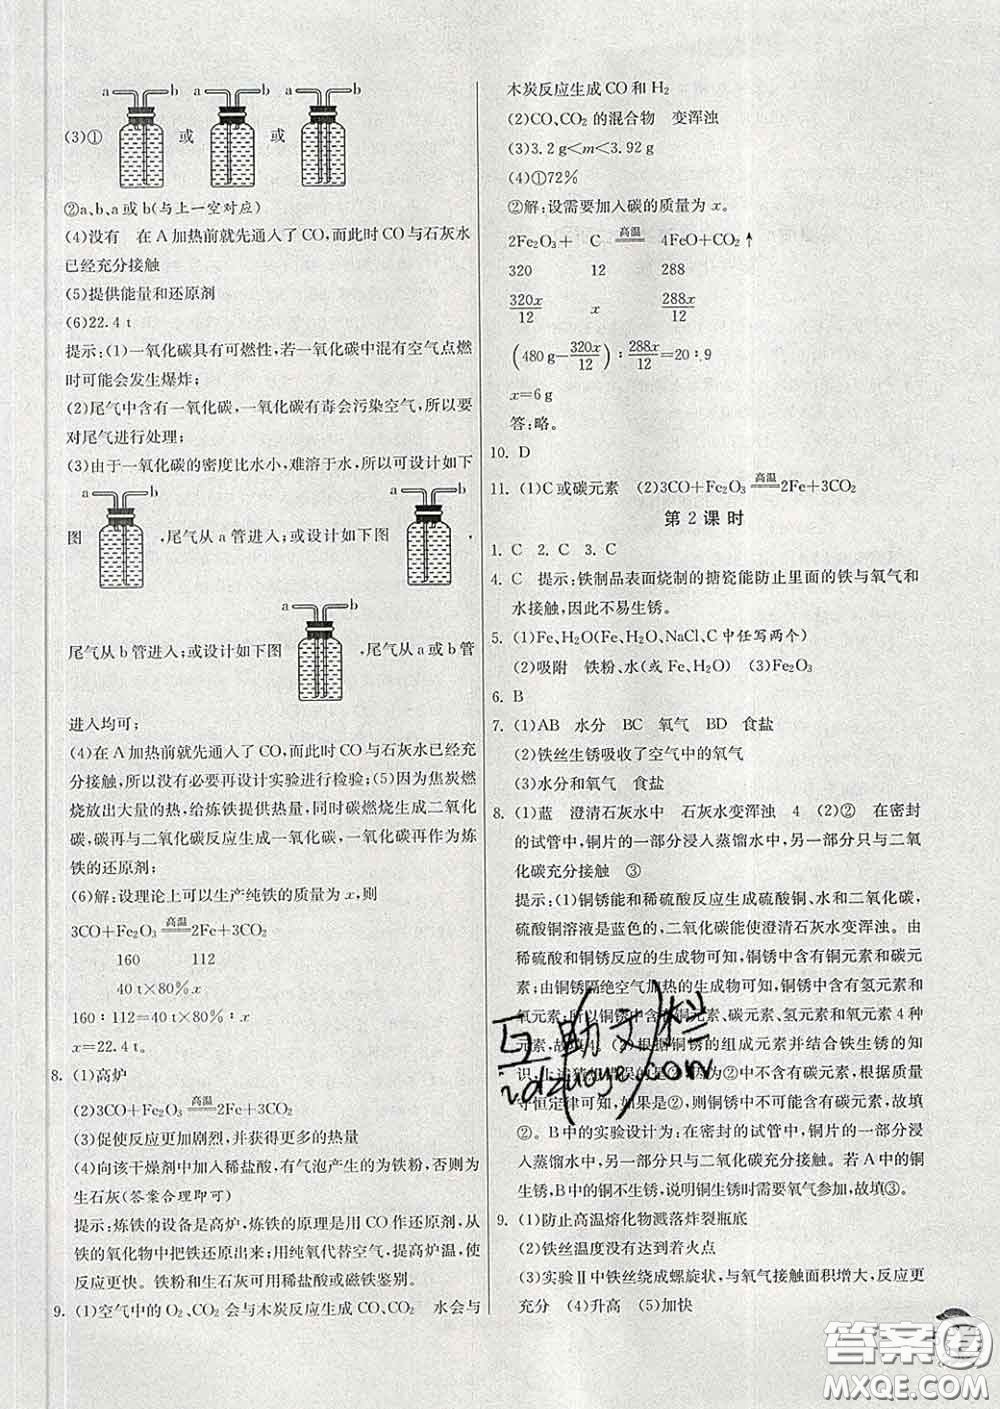 a b a b a b
(3)① 或 或
②a、b、a或b(与上一空对应)
(4)没有 在A加热前就先通入了CO,而此时CO与石灰水
已经充分接触
(5)提供能量和还原剂
(6)22.4 t
提示:(1)一氧化碳具有可燃性,若一氧化碳中混有空气点燃
时可能会发生爆炸;
(2)尾气中含有一氧化碳,一氧化碳有毒会污染空气,所以要
对尾气进行处理;
(3)由于一氧化碳的密度比水小,难溶于水,所以可设计如下
a b a b
图 ,尾气从a管进入;或设计如下图 ,
a b
尾气从b管进入;或设计如下图 ,尾气从a或b管
进入均可;
(4)在A加热前就先通入了CO,而此时CO与石灰水已经充
分接触,所以没有必要再设计实验进行检验;(5)因为焦炭燃
烧放出大量的热,给炼铁提供热量,同时碳燃烧生成二氧化
碳,碳再与二氧化碳反应生成一氧化碳,一氧化碳再作为炼
铁的还原剂;
(6)解:设理论上可以生产纯铁的质量为x,则
3CO+Fe₂O₃ 高温 2Fe+3CO₂
160 112
40 t×80% x
160∶112=40 t×80%∶x
x=22.4 t。
8. (1)高炉
(2)3CO+Fe₂O₃ 高温 2Fe+3CO₂
(3)促使反应更加剧烈,并获得更多的热量
(4)向该干燥剂中加入稀盐酸,有气泡产生的为铁粉,否则为
生石灰(答案合理即可)
提示:炼铁的设备是高炉,炼铁的原理是用CO作还原剂,从
铁的氧化物中把铁还原出来;用纯氧代替空气,提高炉温,使
反应更快。铁粉和生石灰可用稀盐酸或磁铁鉴别。
9. (1)空气中的O₂、CO₂会与木炭反应生成CO、CO₂ 水会与
木炭反应生成CO和H₂
(2)CO、CO₂的混合物 变浑浊
(3)3.2 g<m<3.92 g
(4)①72%
②解:设需要加入碳的质量为x。
2Fe₂O₃+ C 高温 4FeO+CO₂↑
320 12 288
320x/12 x 288x/12
(480 g-320x/12)∶288x/12=20∶9
x=6 g
答:略。
10. D
11. (1)C或碳元素 (2)3CO+Fe₂O₃ 高温 2Fe+3CO₂
第2课时
1. C 2. C 3. C
4. C 提示:铁制品表面烧制的搪瓷能防止里面的铁与氧气和
水接触,因此不易生锈。
5. (1)Fe、H₂O(Fe、H₂O、NaCl、C中任写两个)
(2)吸附 铁粉、水(或Fe、H₂O) (3)Fe₂O₃
6. B
7. (1)AB 水分 BC 氧气 BD 食盐
(2)铁丝生锈吸收了空气中的氧气
(3)水分和氧气 食盐
8. (1)蓝 澄清石灰水中 石灰水变浑浊 4 (2)② 在密封
的试管中,铜片的一部分浸入蒸馏水中,另一部分只与二氧
化碳充分接触 ③
提示:(1)铜锈能和稀硫酸反应生成硫酸铜、水和二氧化碳,
硫酸铜溶液是蓝色的,二氧化碳能使澄清石灰水变浑浊。由
稀硫酸和铜锈反应的生成物可知,铜锈中含有铜元素和碳元
素;由铜锈隔绝空气加热的生成物可知,铜锈中含有氢元素和
氧元素;所以铜锈中含有铜元素、碳元素、氢元素和氧元素4种
元素,故填4。(2)根据铜锈的组成元素并结合铁生锈的知
识,上述猜想错误的是②;因为②中不含碳元素,根据质量
守恒定律可知,如果是②,则铜锈中不可能含有碳元素,故填
②。B中的实验设计为:在密封的试管中,铜片的一部分浸
入蒸馏水中,另一部分只与二氧化碳充分接触。若A中的铜
生锈,B中的铜不生锈,说明铜生锈时需要氧气参加,故填③。
9. (1)防止高温熔化物溅落炸裂瓶底
(2)铁丝温度没有达到着火点
(3)实验Ⅱ中铁丝绕成螺旋状,与氧气接触面积增大,反应更
充分 (4)升高 (5)加快
互助文栏
答案圈
MXQE.COM